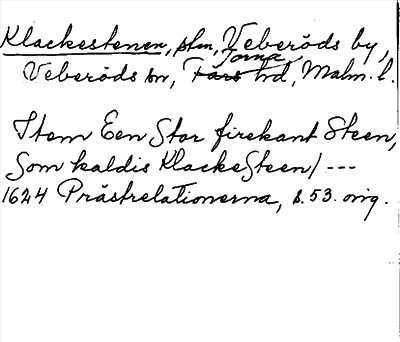 Klackestenen, stn, Veberöds by,
Torna
Veberöds sn, Färs hd, Malm. l.
Item Een Stor firekant Steen,
Som kaldis KlackeSteen/ ---
1624 Prästrelationerna, s. 53. orig.